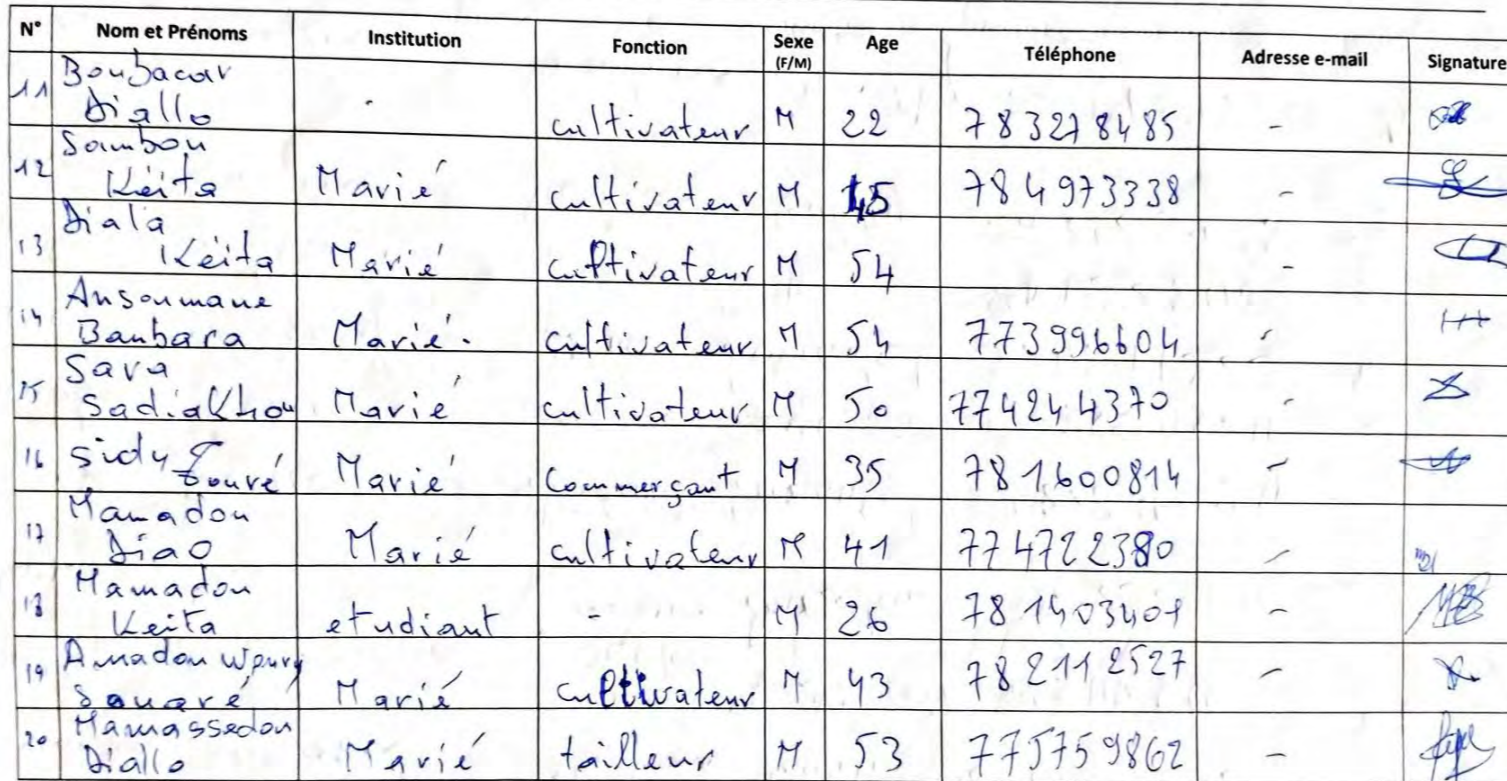 N° Nom et Prénoms Institution Fonction Sexe (F/M) Age Téléphone Adresse e-mail Signature
11 Boubacar Diallo - cultivateur M 22 783278485 -
12 Sambou Keita Marié cultivateur M 45 784973338 -
13 Diala Keita Marié cultivateur M 54 -
14 Ansoumane Banbara Marié. cultivateur M 54 773996604 -
15 Sara Sadiakhou Marié cultivateur M 50 774244370 -
16 Sidy Touré Marié Commerçant M 35 781600814 -
17 Mamadou Diao Marié cultivateur M 41 774722380 -
18 Mamadou Keita etudiant - M 26 781403401 -
19 Amadou Souaré Marié cultivateur M 43 782112527 -
20 Mamassedou Diallo Marié tailleur M 53 775759862 -